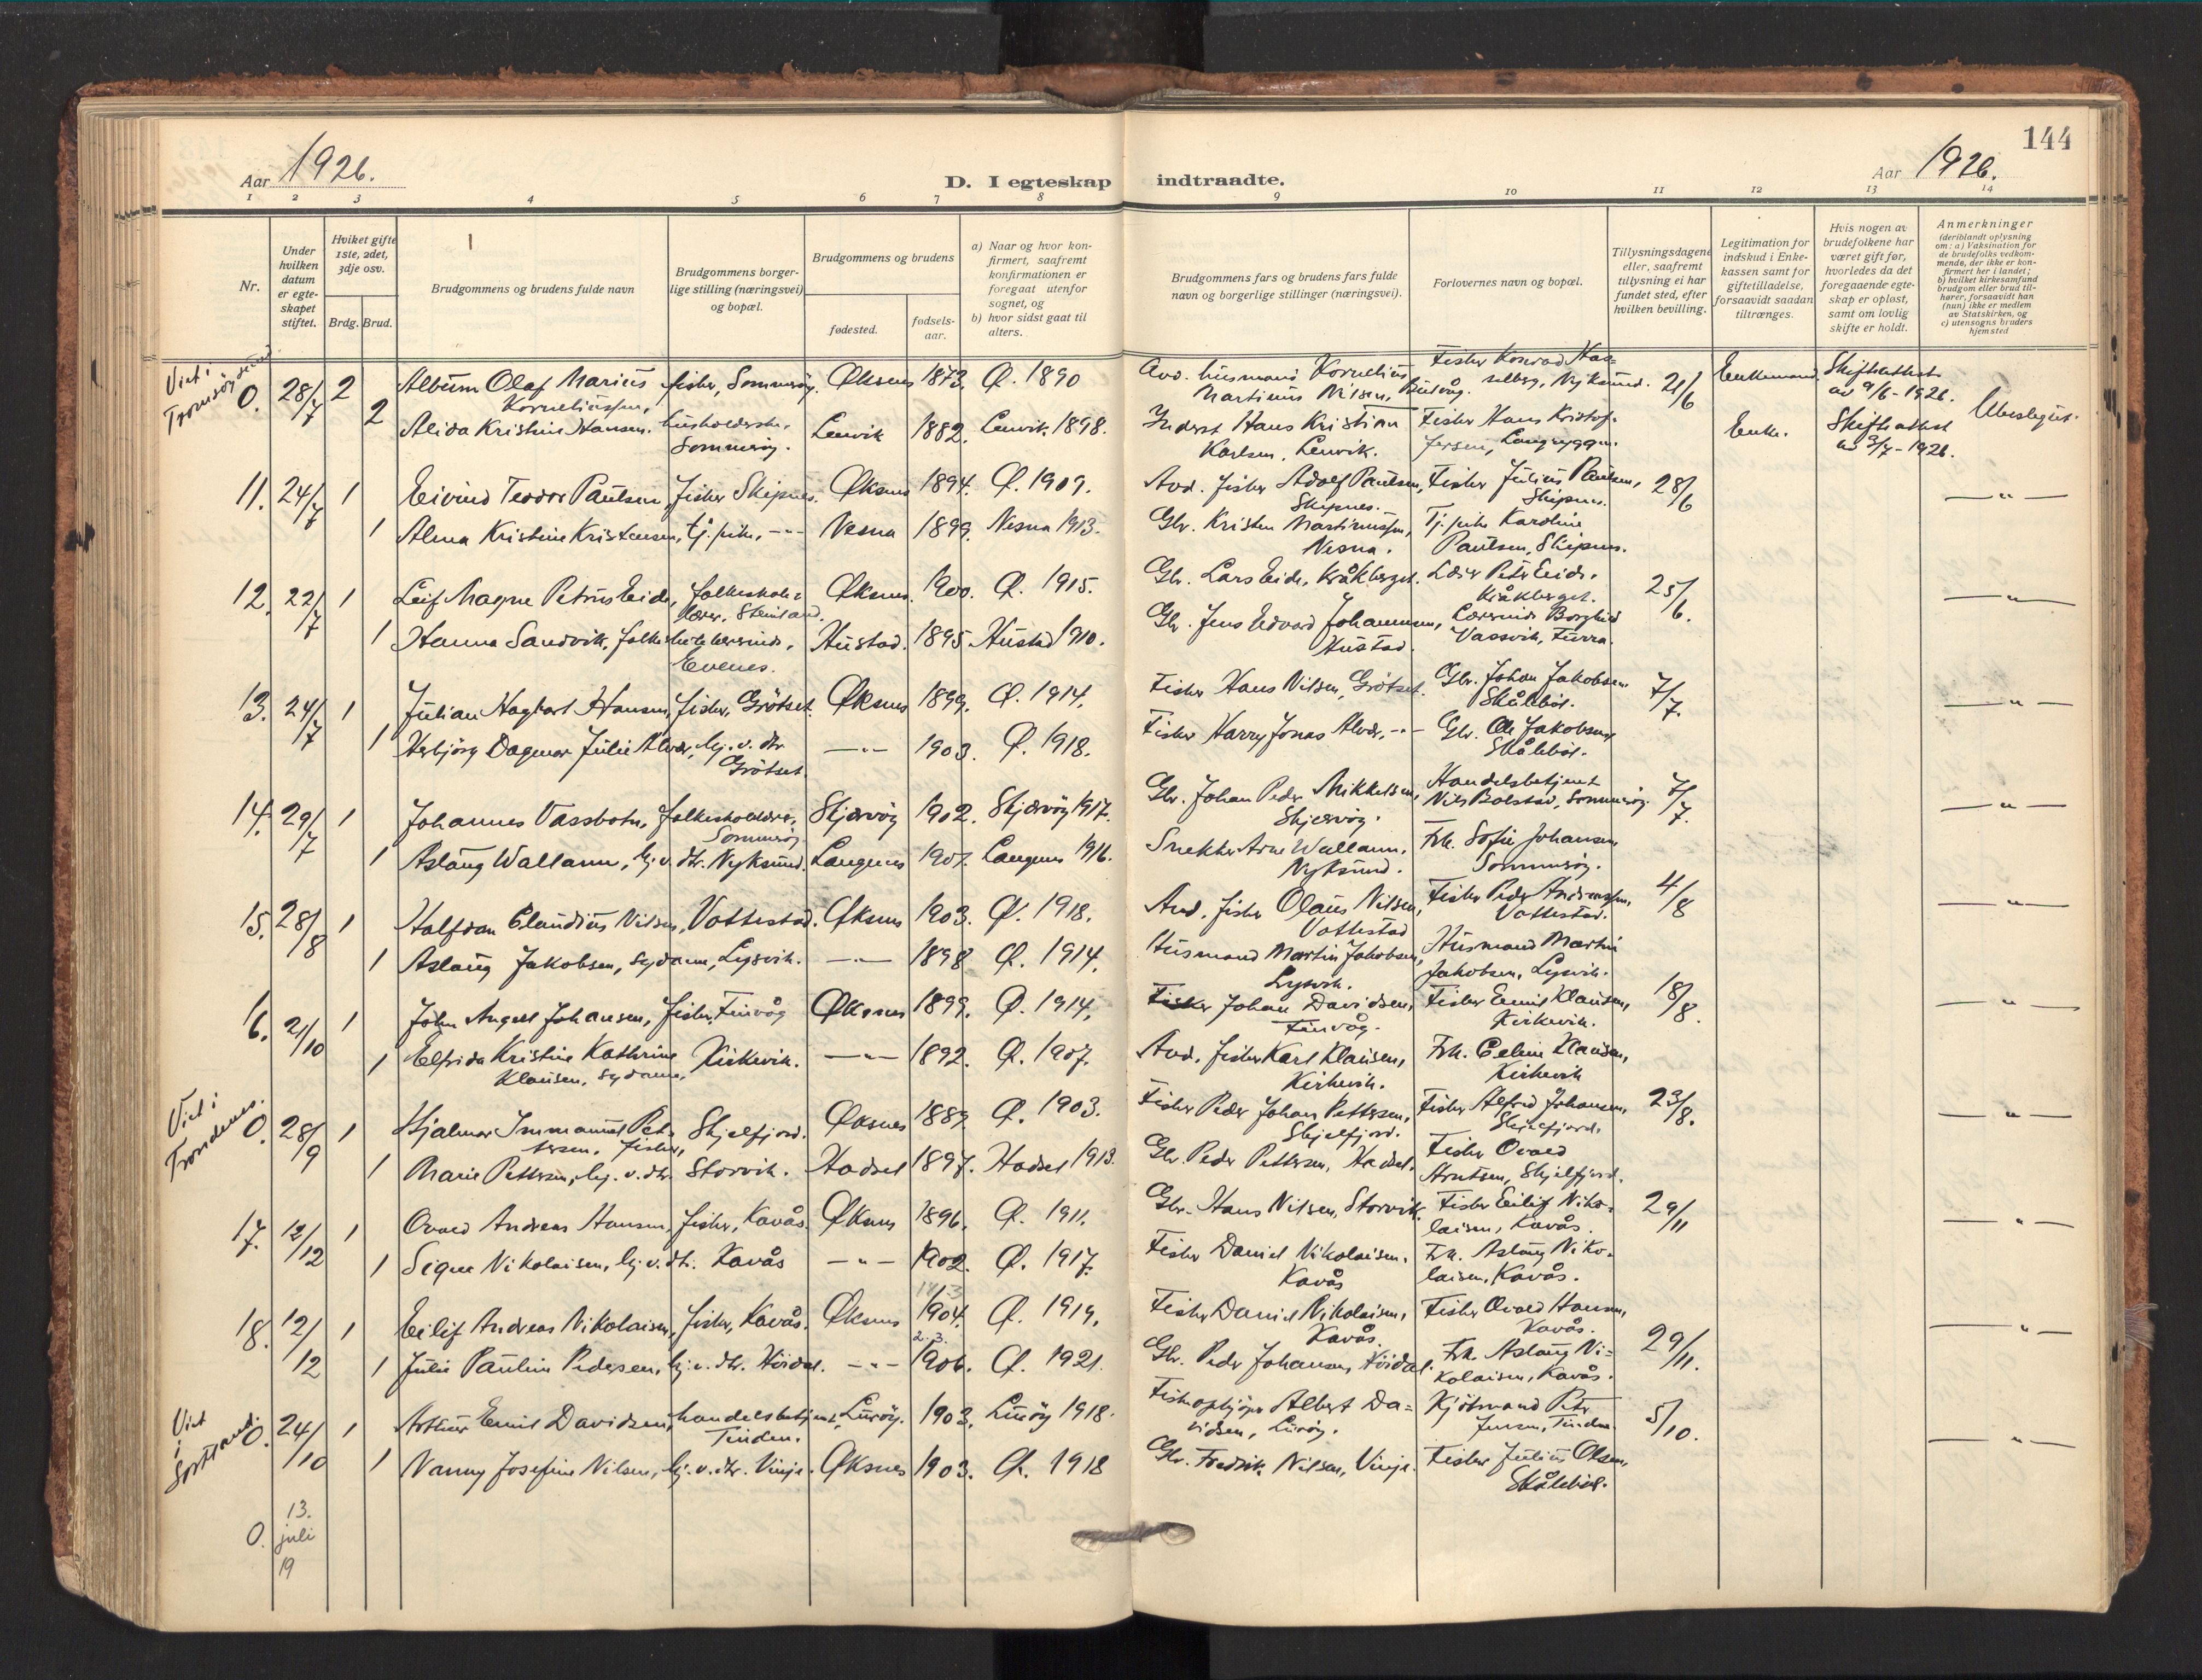 144
Aar 1926.
D. I egteskap indtraadte.
Aar 1926.
1 2 3 4 5 6 7 8 9 10 11 12 13 14
Nr.
Under hvilken datum er egte-skapet stiftet.
Hvilket gifte 1ste, 2det, 3dje osv.
Brdg. Brud.
Brudgommens og brudens fulde navn
Brudgommens borger-
lige stilling (næringsvei)
og bopæl.
Brudgommens og brudens
fødested.
fødsels-
aar.
a) Naar og hvor kon-
firmert, saafremt
konfirmationen er
foregaat utenfor
sognet, og
b) hvor sidst gaat til
alters.
Brudgommens fars og brudens fars fulde
navn og borgerlige stillinger (næringsvei).
Forlovernes navn og bopæl.
Tillysningsdagene
eller, saafremt
tillysning ei har
fundet sted, efter
hvilken bevilling.
Legitimation for
indskud i Enke-
kassen samt for
giftetilladelse,
forsaavidt saadan
tiltrænges.
Hvis nogen av
brudefolkene har
været gift før,
hvorledes da det
foregaaende egte-
skap er opløst,
samt om lovlig
skifte er holdt.
Anmerkninger
(deriblandt oplysning
om: a) Vaksination for
de brudefolks vedkom-
mende, der ikke er kon-
firmert her i landet;
b) hvilket kirkesamfund
brudgom eller brud til-
hører, forsaavidt han
(hun) ikke er medlem
av Statskirken, og
c) utensogns bruders
hjemsted
Viet i
Tromsøysund
0. 28/7 2 Album Olaf Marius fisker, Sommerøy. Øksnes 1873. Ø. 1890 Avd. husmand Kornelius Fisker Konrad Has- 21/6 Enkemand Skifteattest
Korneliussen, Martinus Nilsen, selberg, Nyksund. av 9/6-1926.
2 Alida Kristine Hansen. husholderske, Lenvik 1882. Lenvik 1898. Inderst Hans Kristian Fisker Hans Kristof- Enke. Skifteattest Ubeslegtet.
Sommerøy. Karlsen, Lenvik. fersen, Langryggen. av 3/7-1926.
11. 24/7 1 Eivind Teodor Paulsen, fisker Skipnes. Øksnes 1894. Ø. 1909. Avd. fisker Adolf Paulsen, Fisker Julius Paulsen, 28/6 — " —
Skipnes. Skipnes.
1 Alma Kristine Kristensen, tj. pike, -"- Nesna 1899. Nesna 1913. Gbr. Kristen Martinussen, Tj. pike Karoline
Nesna. Paulsen, Skipnes.
12. 22/7 1 Leif Magne Petrus Eide, folkeskole- Øksnes. 1900. Ø. 1915. Gbr. Lars Eide, Kråkberget. Lærer Peter Eide, 25/6. — " —
lærer, Steinland. Kråkberget.
1 Hanna Sandvik, folkeskolelærerinde, Hustad. 1895. Hustad 1910. Gbr. Jens Edvard Johannesen, Lærerinde Borghild
Evenes. Hustad. Vassvik, Furra.
13. 24/7 1 Julian Hagbart Hansen, fisker, Grötset. Øksnes 1899. Ø. 1914. Fisker Hans Nilsen, Grötset. Gbr. Johan Jakobsen 7/7. — " —
Skåleböl.
1 Herbjörg Dagmar Julie Alvær, hj. v. dtr. — " — 1903. Ø. 1918. Fisker Harry Jonas Alvær, -"- Gbr. Ole Jakobsen
Grötset. Skåleböl.
14. 29/7 1 Johannes Vassbotn, folkeskolelærer, Skjærvøy 1902. Skjærvøy 1917. Gbr. Johan Peder Mikkelsen, Handelsbetjent 7/7. — " —
Sommerøy Skjærvøy. Nils Bolstad, Sommerøy.
1 Aslaug Wallann, hj. v. dtr. Nyksund. Langenes 1901. Langenes 1916. Snekker Arne Wallann. Frk. Sofie Johansen
Nyksund. Sommerøy.
15. 28/8 1 Halfdan Claudius Nilsen, Vottestad. Øksnes 1903. Ø. 1918. Avd. fisker Olaus Nilsen, Fisker Peder Andreassen, 4/8 — " —
Vottestad Vottestad.
1 Aslaug Jakobsen, sydame, Lysvik. — " — 1898 Ø. 1914. Husmand Martin Jakobsen, Husmand Martin
Lysvik. Jakobsen, Lysvik.
16. 2/10 1 John Angell Johansen, fisker, Finvåg Øksnes 1899. Ø. 1914. Fisker Johan Davidsen, Fisker Emil Klausen, 18/8. — " —
Finvåg. Kirkevik.
1 Elfrida Kristine Kathrine Kirkevik. — " — 1892. Ø. 1907. Avd. fisker Karl Klausen, Frk. Celine Klausen,
Klausen, sydame, Kirkevik. Kirkevik
Viet i
Trondenes.
0. 28/9 1 Hjalmar Immanuel Pet- Skjelfjord. Øksnes 1889. Ø. 1903. Fisker Peder Johan Pettersen, Fisker Alfred Johansen, 23/8. — " —
tersen, fisker, Skjelfjord. Skjelfjord.
1 Marie Pettersen, hj. v. dtr. Storvik. Hadsel 1897. Hadsel 1913. Gbr. Peder Pettersen, Hadsel. Fisker Ovald
Arntsen, Skjelfjord.
17. 12/12 1 Ovald Andreas Hansen, fisker, Kavås. Øksnes 1896. Ø. 1911. Gbr. Hans Nilsen, Storvik. Fisker Eilif Niko- 29/11 — " —
laisen, Kavås.
1 Signe Nikolaisen, hj. v. dtr. Kavås — " — 1902. Ø. 1917. Fisker Daniel Nikolaisen. Frk. Aslaug Niko-
Kavås laisen, Kavås.
18. 12/12 1 Eilif Andreas Nikolaisen, fisker, Kavås. Øksnes 1904. Ø. 1919. Fisker Daniel Nikolaisen, Fisker Ovald Hansen, 29/11. — " —
Kavås. Kavås.
2. 3.
1 Julie Pauline Pedersen, hj. v. dtr. Höidal. — " — 1906. Ø. 1921. Gbr. Peder Johansen, Höidal. Frk. Aslaug Ni-
kolaisen, Kavås.
Viet
i
Sortland.
0. 24/10 1 Arthur Emil Davidsen, handelsbetjent, Lurøy. 1903. Lurøy 1918. Fiskeopkjöper Albert Da- Kjöbmand Peter 5/10. — " —
Tinden. vidsen, Lurøy. Jensen, Tinden.
1 Nanny Josefine Nilsen, hj. v. dtr. Vinje. Øksnes 1903. Ø. 1918 Gbr. Fredrik Nilsen, Vinje. Fisker Julius Olsen,
Skåleböl.
0. 13.
juli
19